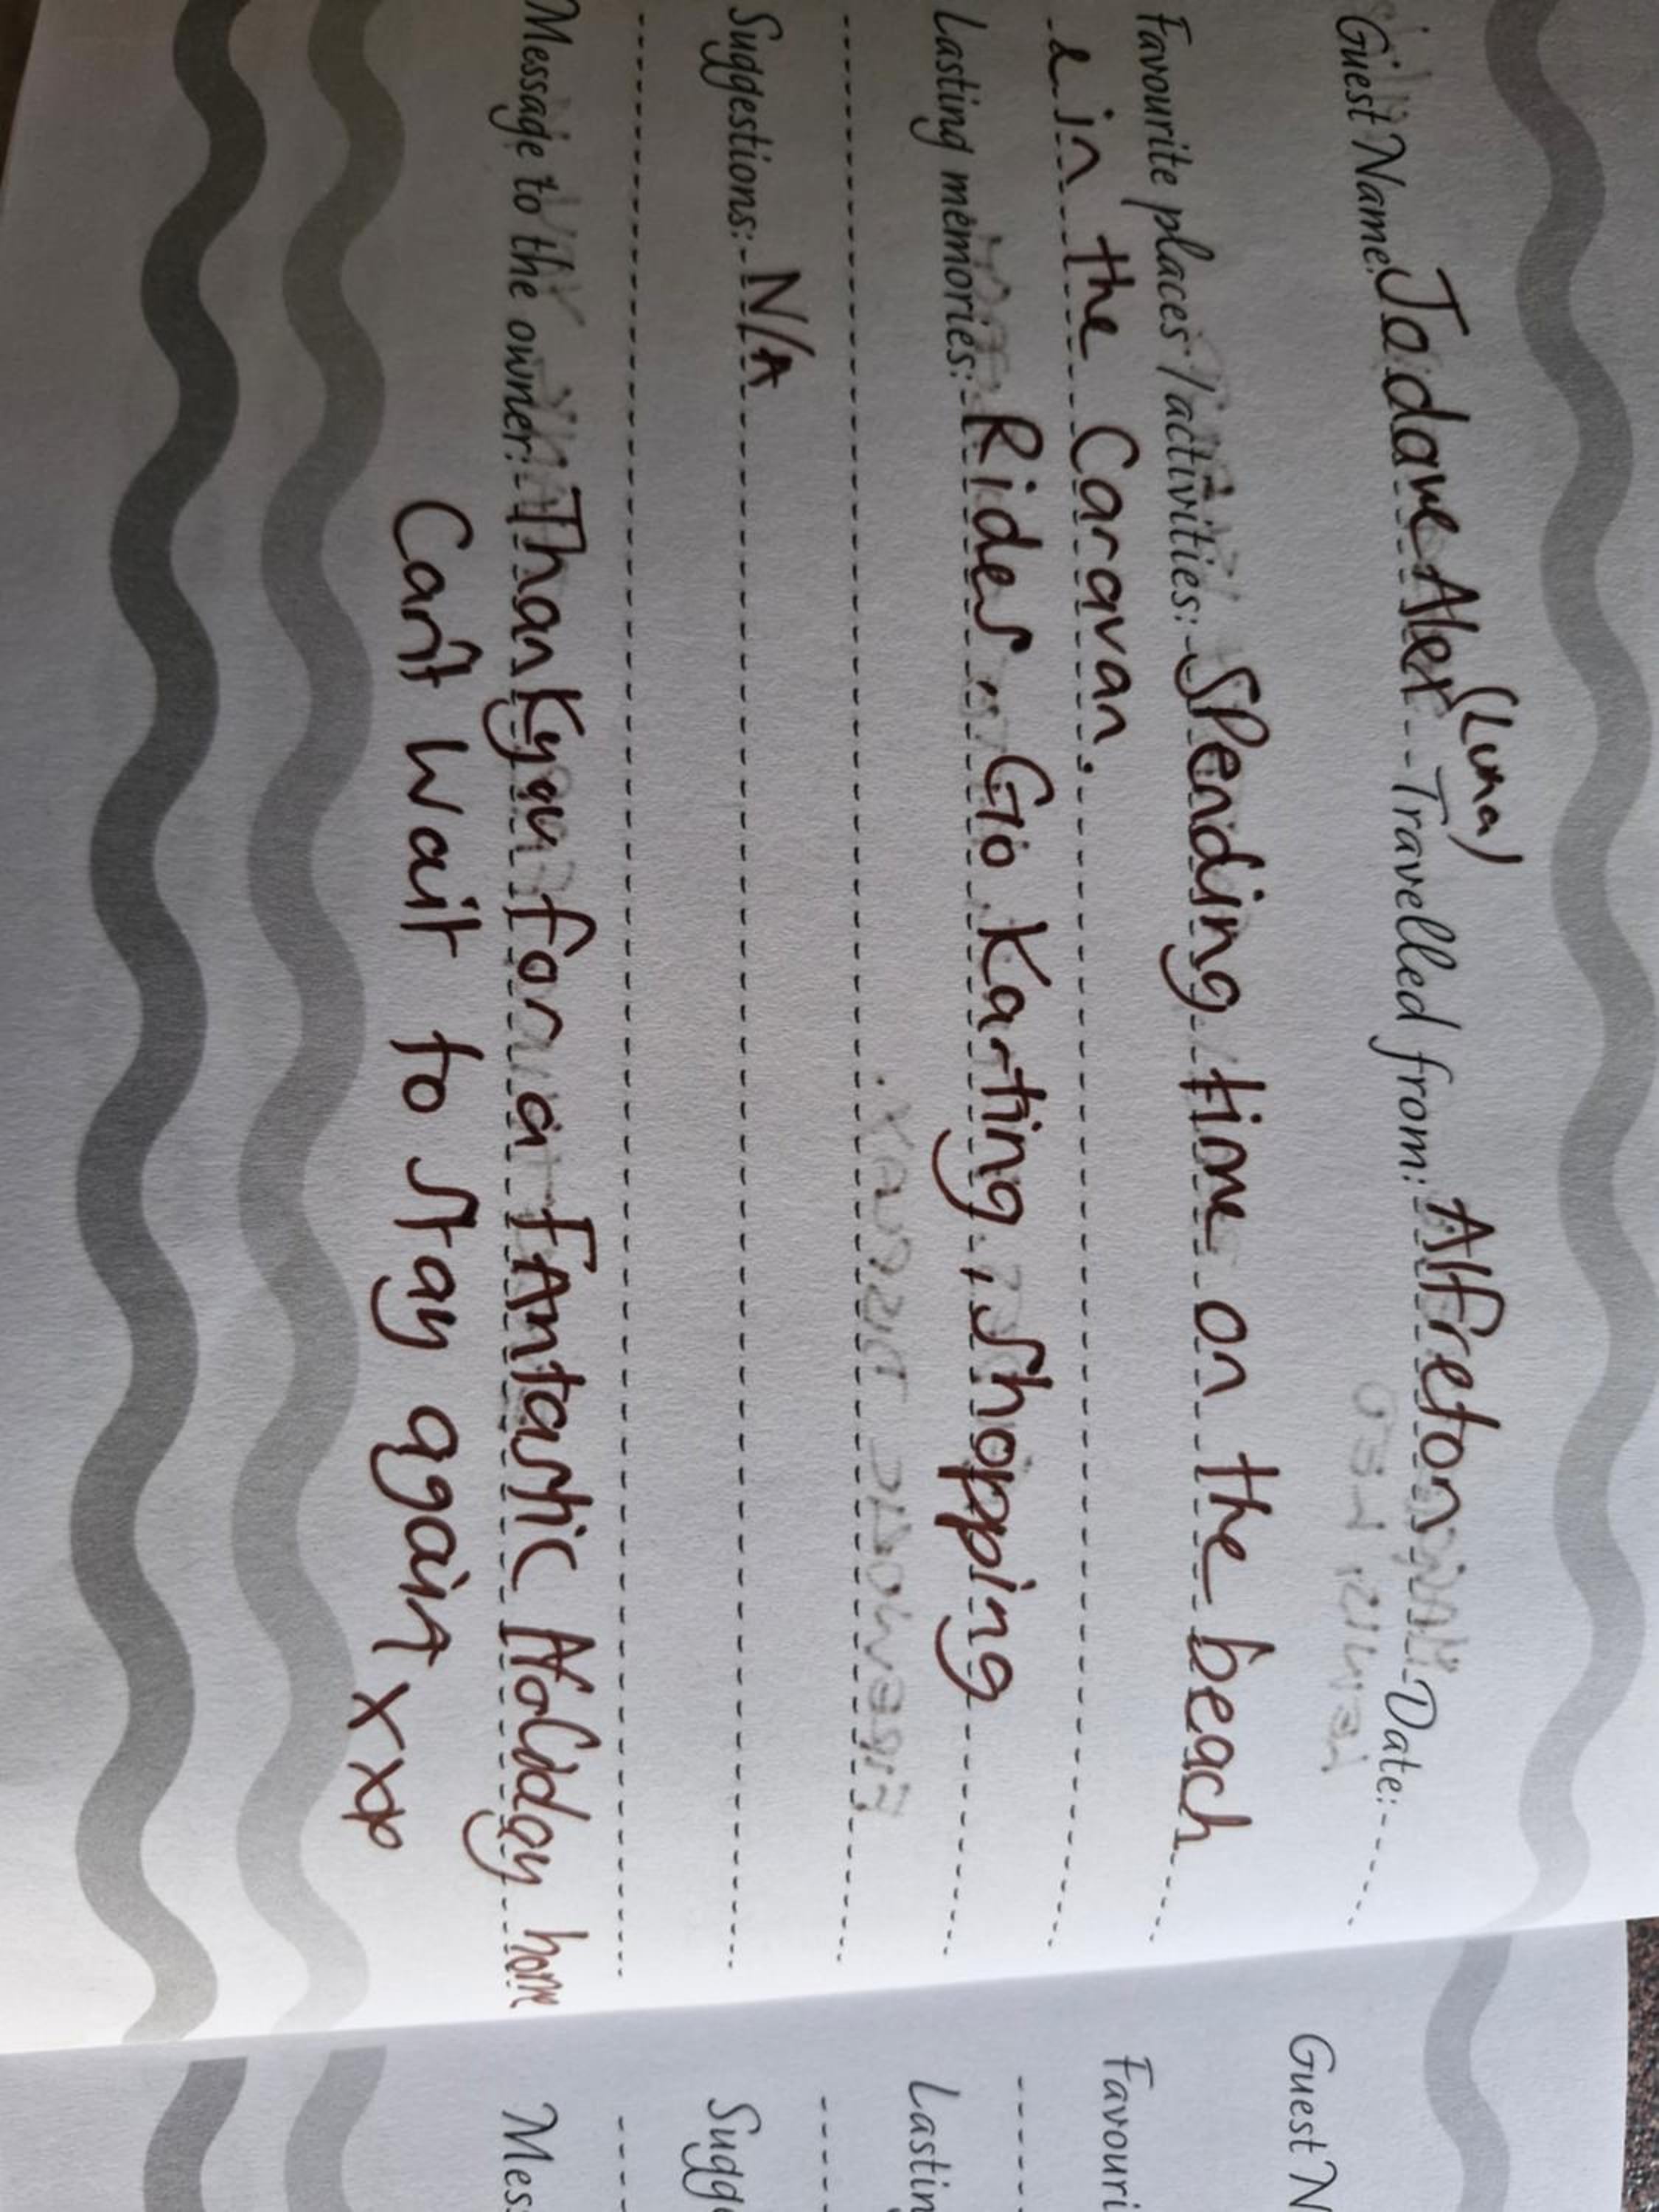 (Luna)
Guest Name: Jo dave Alex Travelled from: Alfreton Date:
Favourite places / activities: Spending time on the beach
& in the Caravan.
Lasting memories: Rides, Go Karting, Shopping
Suggestions: N/A
Message to the owner: Thankyou for a FAntastic Holiday home
Can't Wait to Stay again xxx
Guest N
Favouri
Lastin
Sugg
Mes